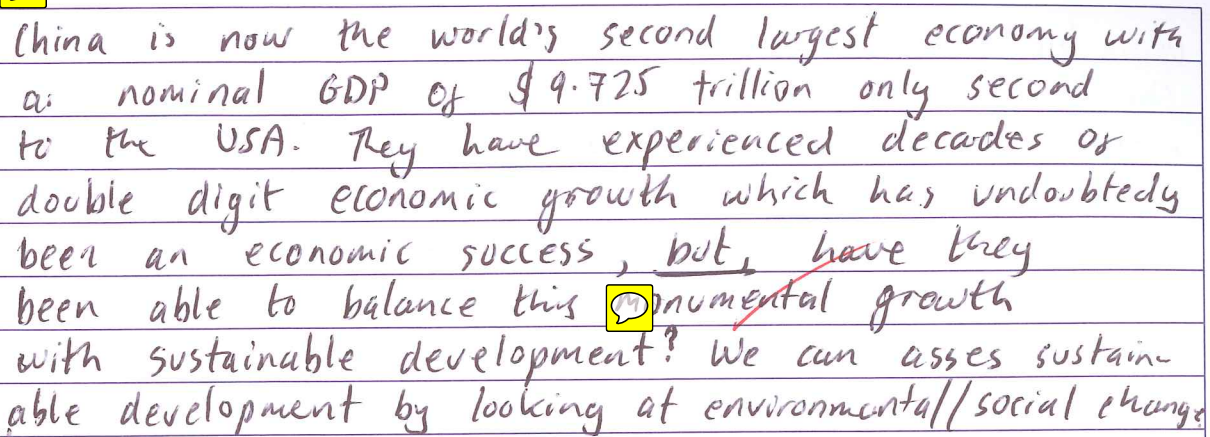 China is now the world's second largest economy with
a nominal GDP of $9.725 trillion only second
to the USA. They have experienced decades of
double digit economic growth which has undoubtedly
been an economic success, but, have they
been able to balance this monumental growth
with sustainable development? We can asses sustain-
able development by looking at environmental/social change